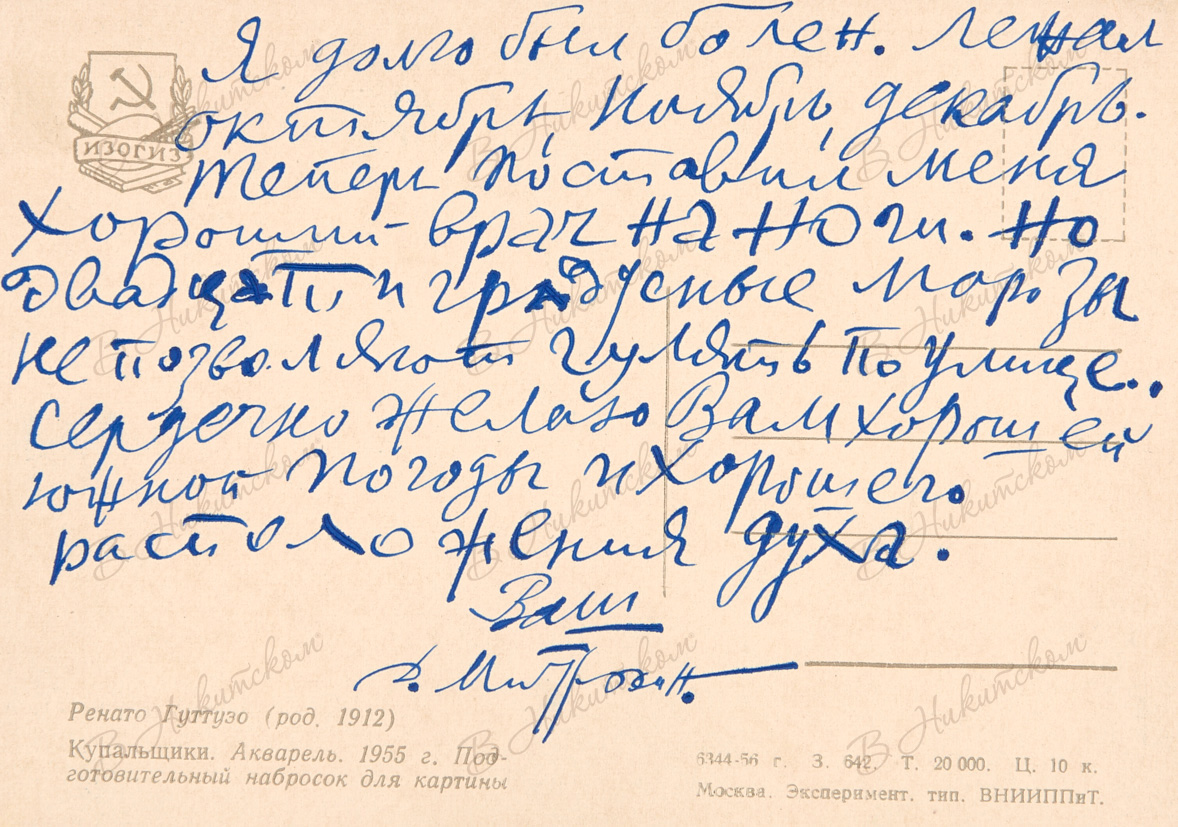 Я долго был болен. Лежал
октябрь, ноябрь, декабрь.
Теперь поставил меня
хороший врач на ноги. Но
двадцати градусные морозы
не позволяют гулять по улице..
Сердечно желаю Вам хорошей
южной погоды и хорошего
расположения духа.
Ваш
Д. Митрохин.
ИЗОГИЗ
Ренато Гуттузо (род. 1912)
Купальщики. Акварель. 1955 г. Под-
готовительный набросок для картины
6344-56 г. З. 642. Т. 20 000. Ц. 10 к.
Москва. Эксперимент. тип. ВНИИППиТ.
В Никитском